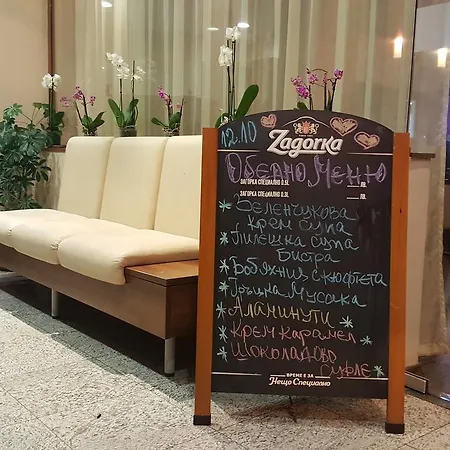 12.10
Zagorka
Обедно Меню
ЗАГОРКА СПЕЦИАЛНО 0.5L ЛВ.
ЗАГОРКА СПЕЦИАЛНО 0.3L ЛВ.
Зеленчукова
крем супа
Пилешка супа
Бистра
Боб яхния с кюфтета
Гръцка Мусака
Аламинути
Крем карамел
Шоколадово
Суфле
ВРЕМЕ Е ЗА
Нещо Специално